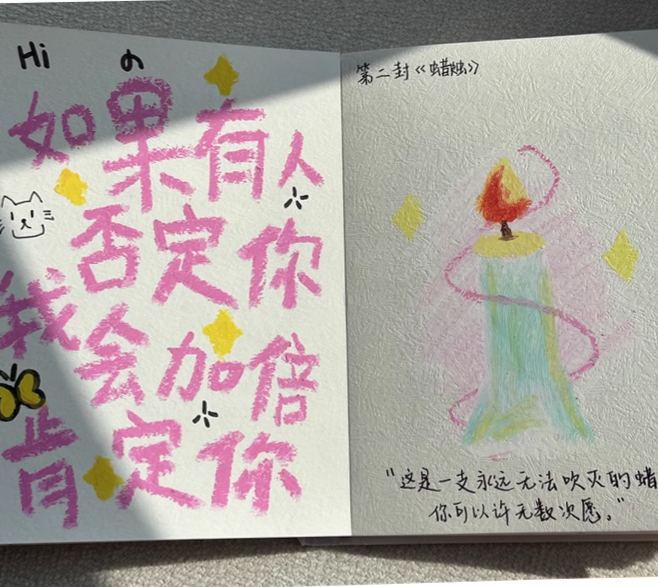 Hi の
如果有人
否定你
我会加倍
肯定你
第二封《蜡烛》
"这是一支永远无法吹灭的蜡
你可以许无数次愿。"